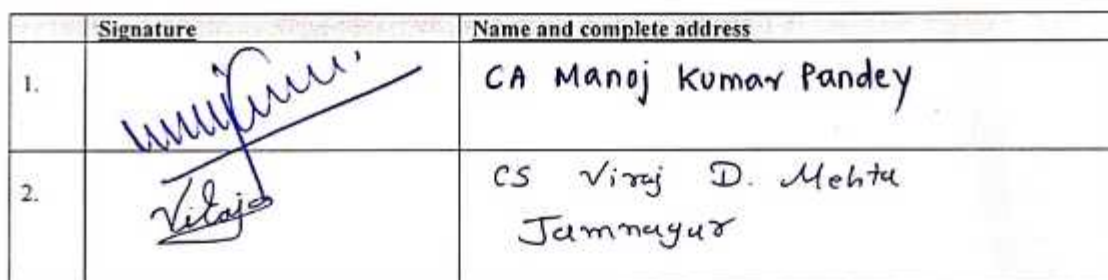 Signature Name and complete address
1. CA Manoj Kumar Pandey
2. Viraj CS Viraj D. Mehta
Jamnagar